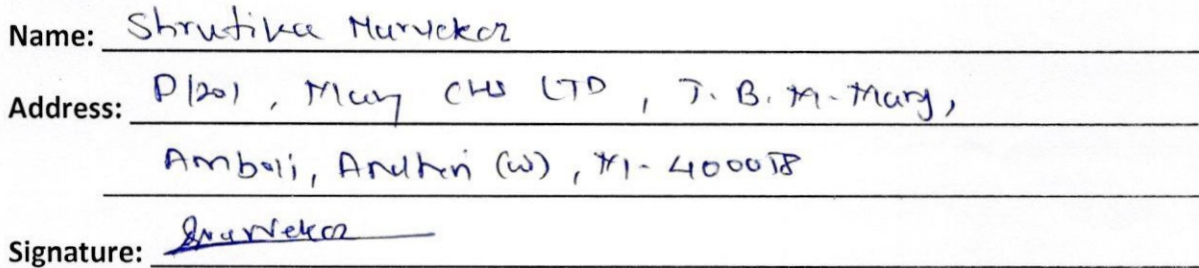 Name: Shrutika Murvekar
Address: D/201, Mary CHS LTD, J. B. M. Marg,
Amboli, Andheri (W), 400058
Signature: